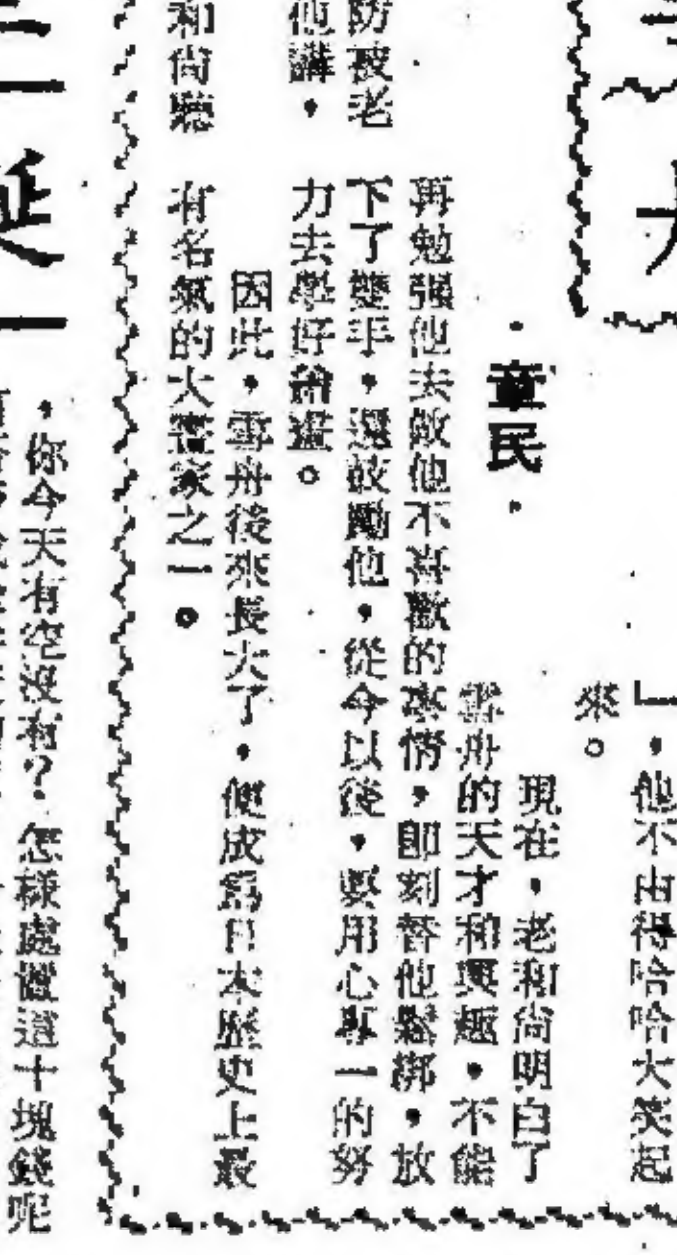 」,他不由得哈哈大笑起
來。
・童民・
現在,老和尚明白了
雪舟的天才和興趣,不能
再勉强他去做他不喜歡的事情,卽刻替他鬆綁,放
下了雙手,還鼓勵他,從今以後,要用心專一的努
力去學好繪畫。
因此,雪舟後來長大了,便成爲日本歷史上最
有名氣的大畫家之一。
防被老
他講,
和尚聽
誕
,你今天有空沒有?怎樣處置這十塊錢呢